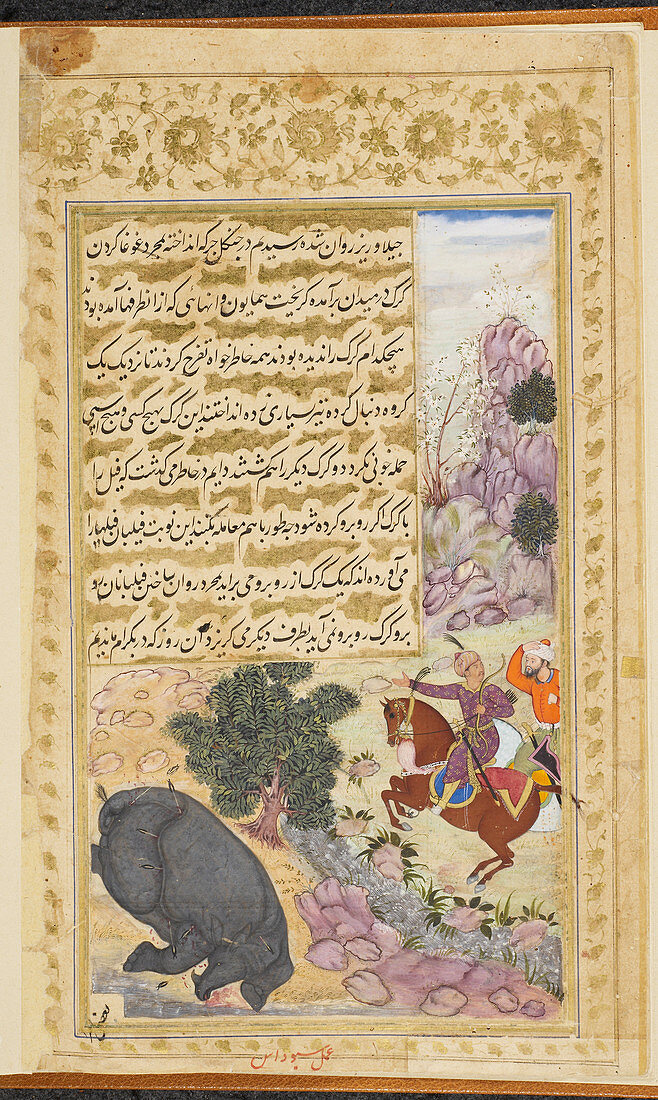 جیلاو ریز روان شده رسیدیم در جنکل جرکه انداخته بمجرد غوغا کردن
کرک در میدان برآمده کریخت همایون و انهائی که از انطرفها آمده بودند
هیچکدام کرک را ندیده بودند همه خاطر خواه تفرج کردند تا نزدیک یک
کروه دنبال کرده تیر بسیاری زده انداختند این کرک بهیچ کسی و بهیچ اسپی
حمله خوبی نکرد دو کرک دیکر را هم کشتند دایم در خاطر می کذشت که فیل را
با کرک اکر روبرو کرده شود چه طور با هم معامله بکنند این نوبت فیلبان فیلها را
می آورده اند که یک کرک از روبرو می براید بمجرد روان ساختن فیلبانان رو
برو کرک روبرو نمی آید بطرف دیکر می کریزد آن روز که در بکرام ماندیم
عمل سیوداس